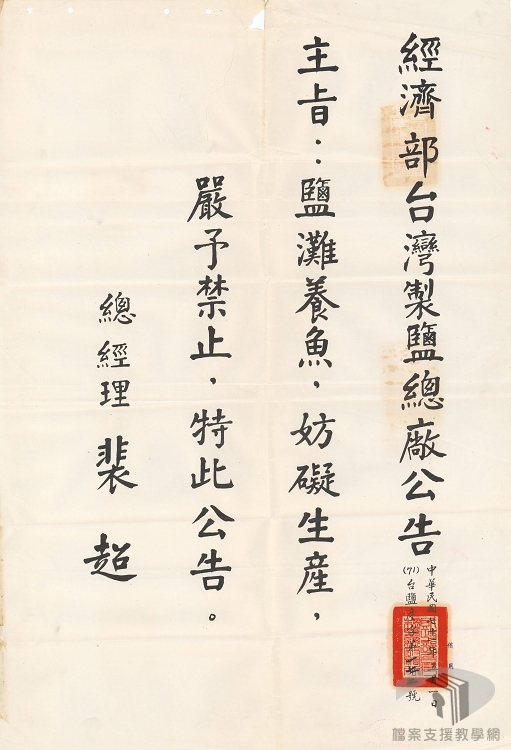 經濟部台灣製鹽總廠公告
中華民國七十一年
(71)台鹽
主旨：鹽灘養魚，妨礙生產，
嚴予禁止，特此公告。
總經理 裴超
檔案支援教學網